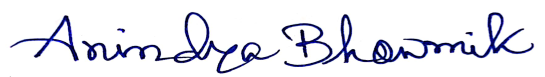 Anindya Bhowmik